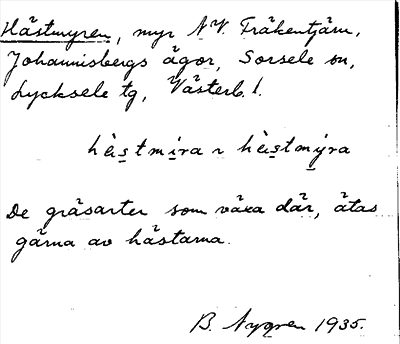 Hästmyren, myr N.V. Fräkentjärn,
Johannisbergs ägor, Sorsele sn,
Lycksele tg, Västerb. l.
hẹ̀stmira ~ hẹ̀stmyra
De gräsarter som växa där, ätas
gärna av hästarna.
B. Nygren 1935.